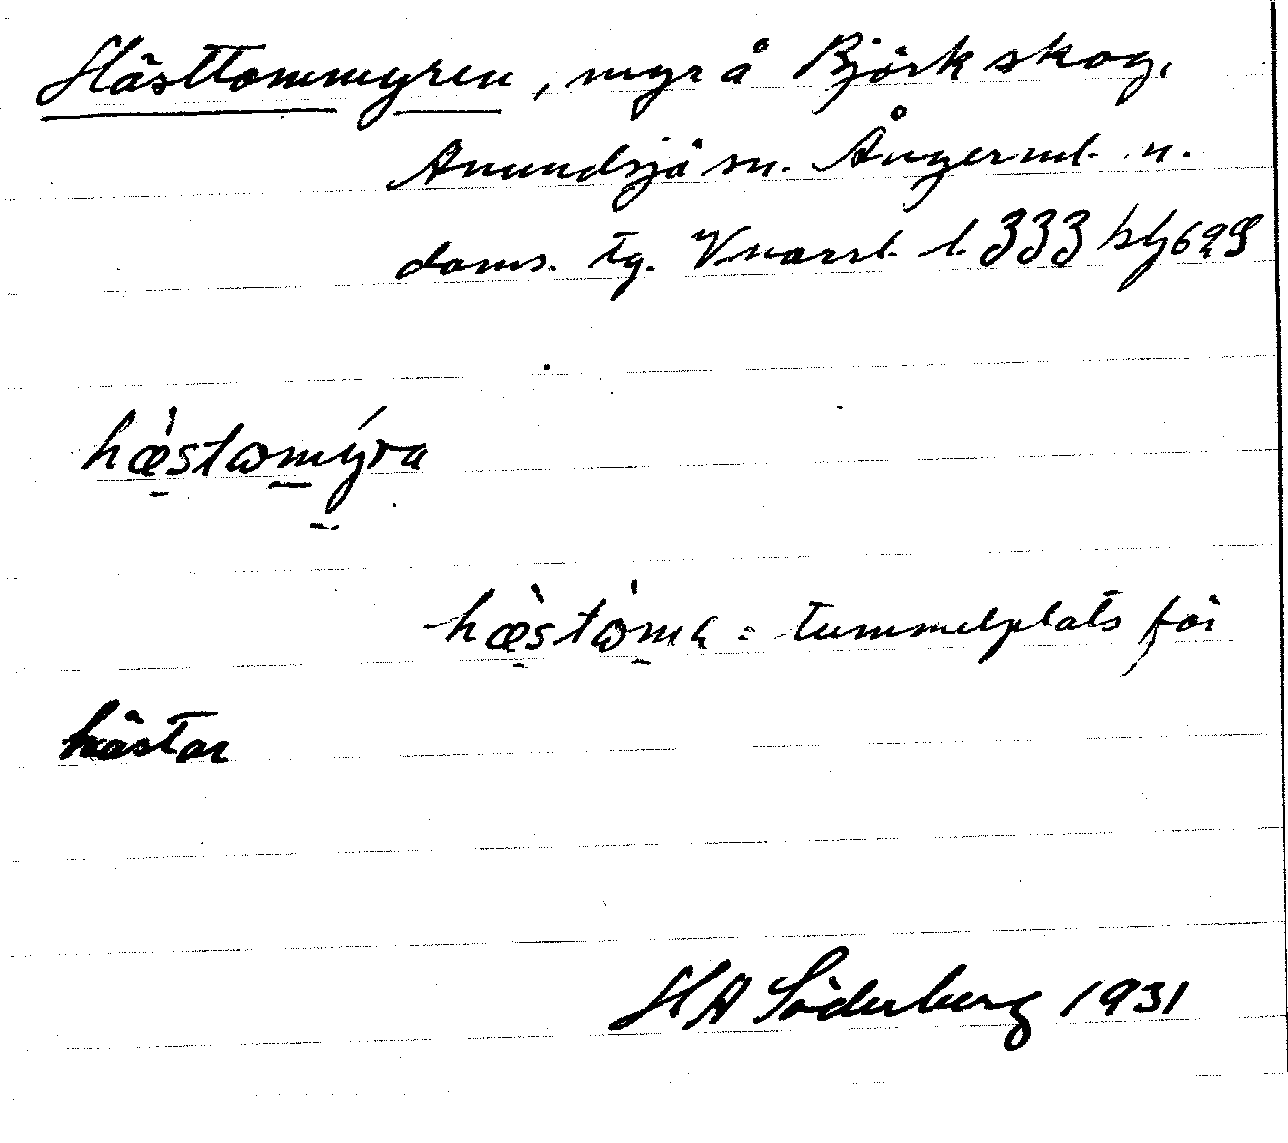 Hästtommyren, myr å Björkskog,
Anundsjö sn. Ångerml. n.
doms. tg. l. 333
hæ̀stωmy̆́ra
hæ̀stὼma = tummelplats för
hästar
HA Söderberg 1931